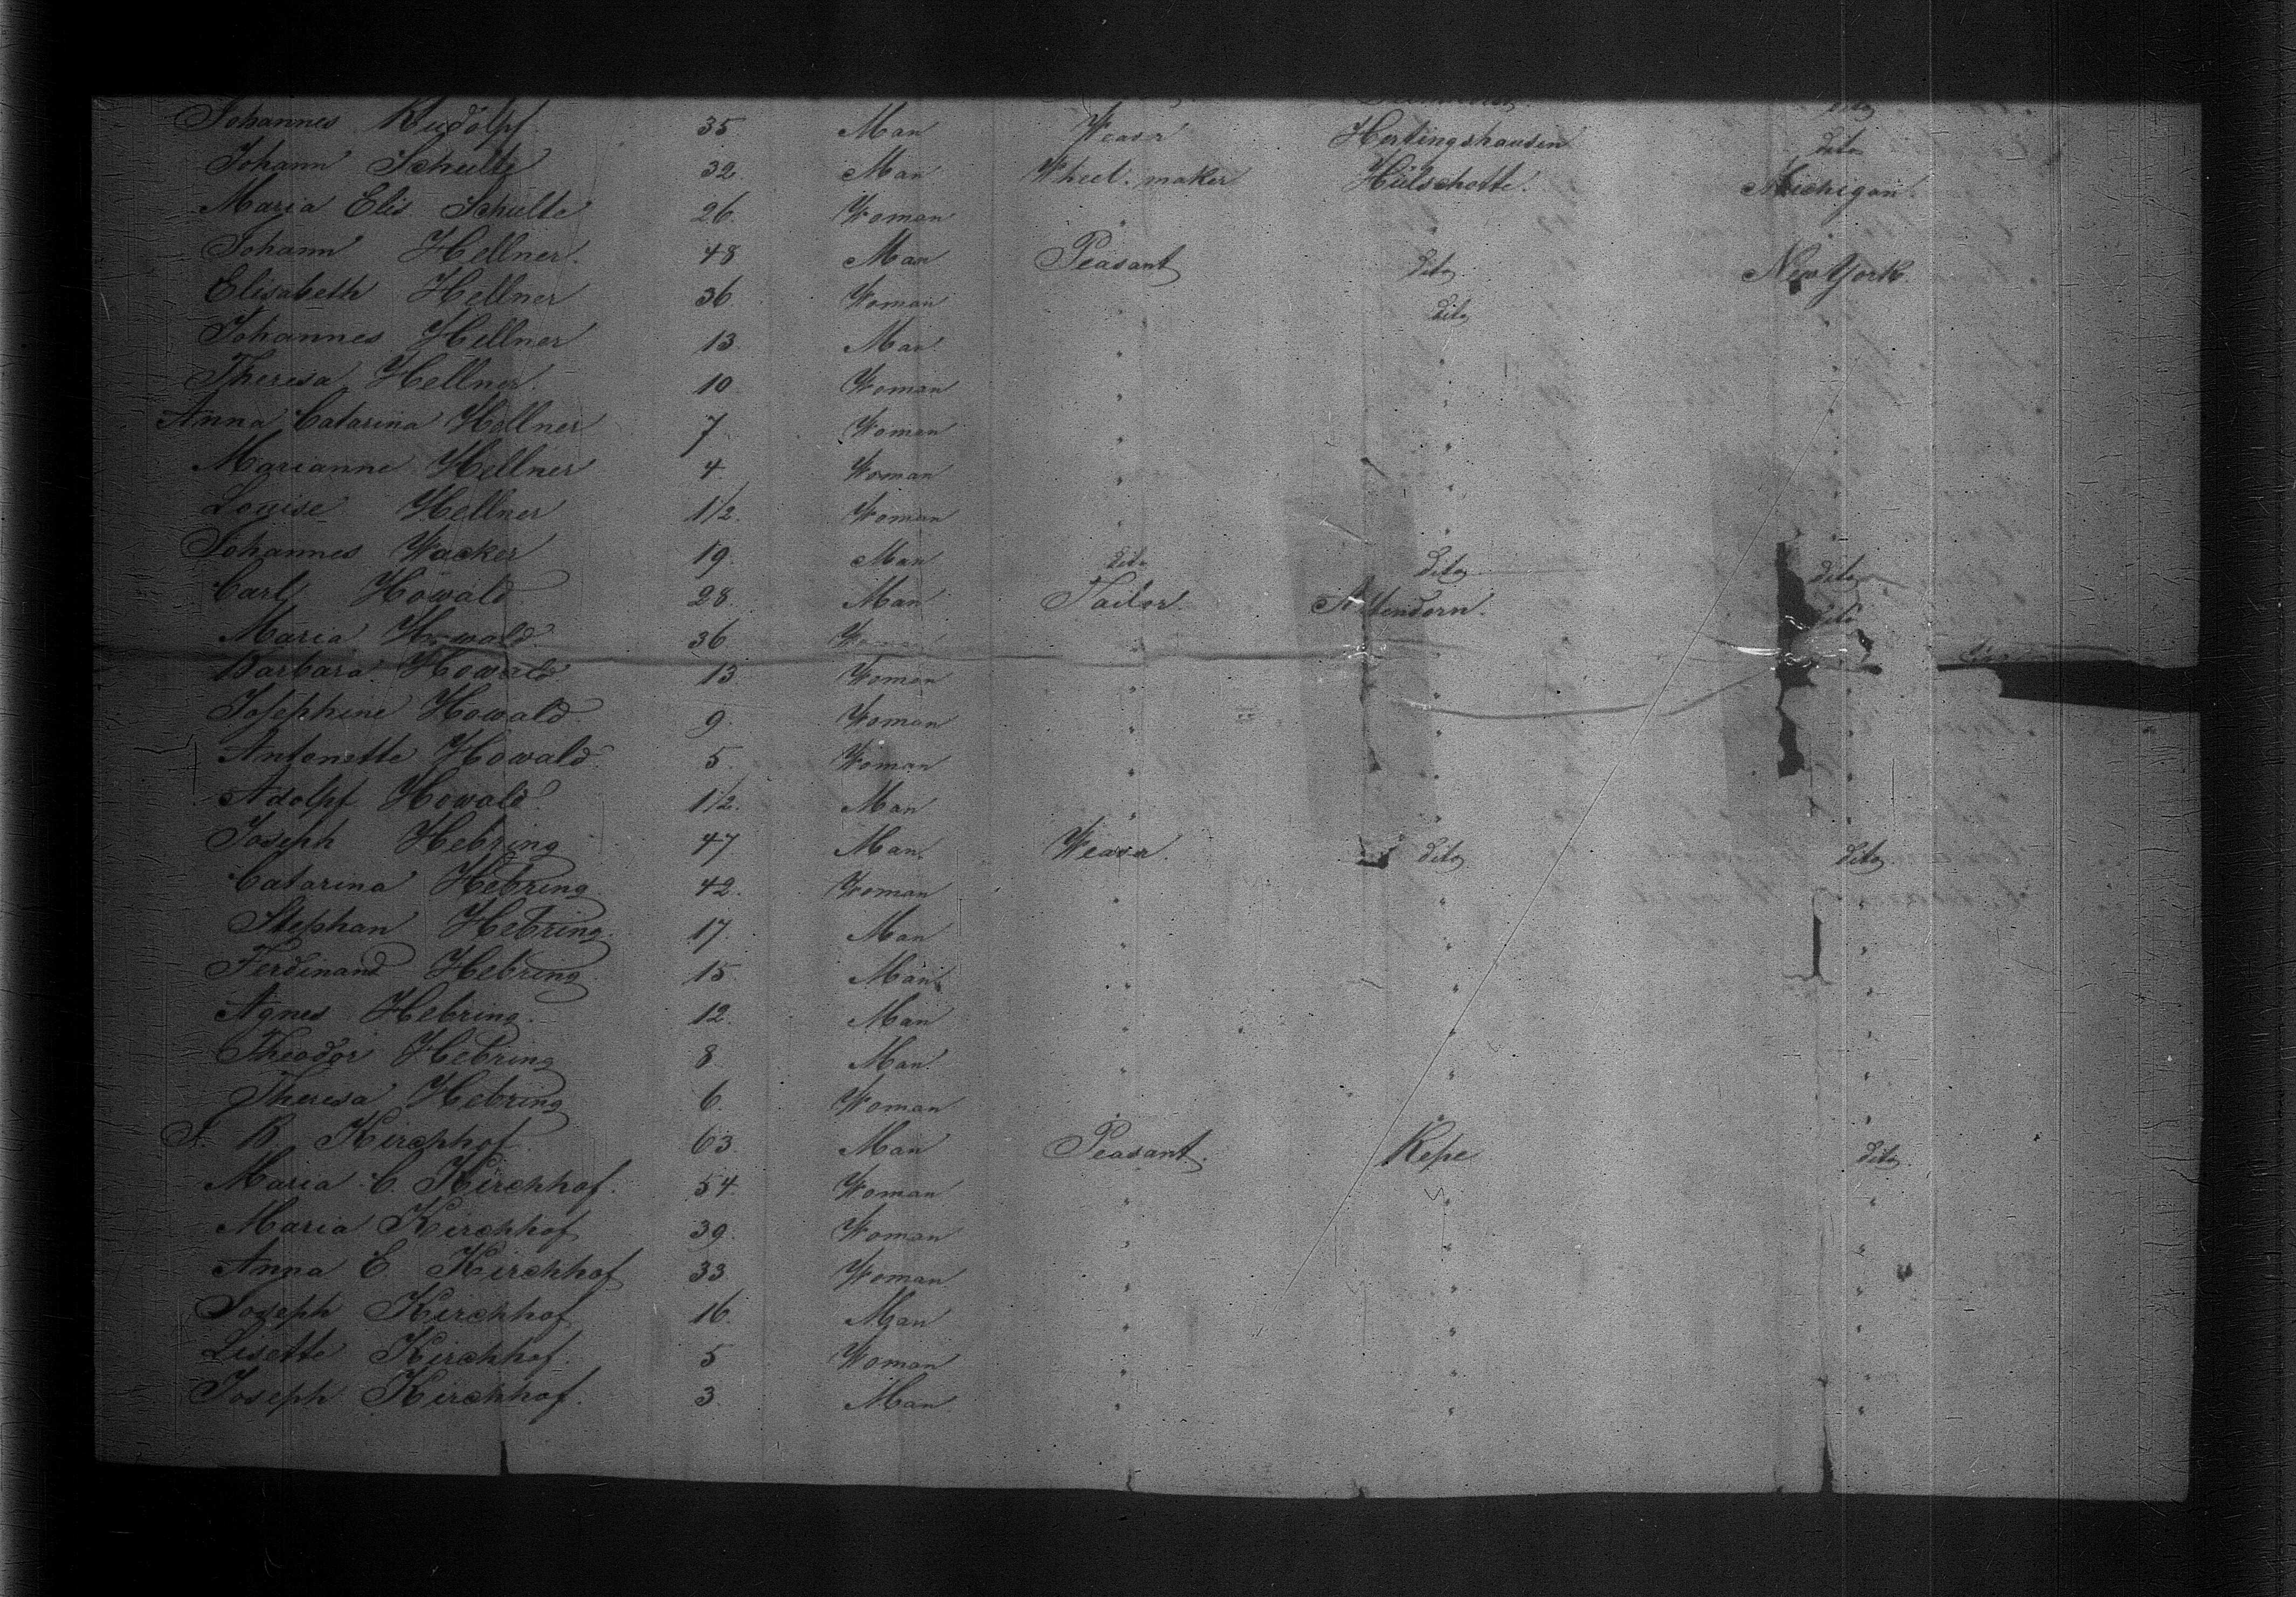 dito
Johannes Rudolpf 35 Man Weaver Hertingshausen dito
Johann Schulte 32. Man Wheel. maker Hülschotte. Michigan.
Maria Elis. Schulte 26 Woman " " "
Johann Hellner. 48 Man Peasant dito New York.
Elisabeth Hellner 36 Woman " dito "
Johannes Hellner 13 Man. " " "
Theresa Hellner. 10 Woman " " "
Anna Catarina Hellner 7 Woman " " "
Marianne Hellner 4. Woman " " "
Louise Hellner 1/2. Woman " " "
Johannes Wacker 19. Man dito dito dito
Carl Howald 28. Man Tailor. Attendorn. dito
Maria Howald 36 Woman "
Barbara Howald 13 Woman " " "
Josephine Howald 9. Woman " " "
Antonette Howald 5. Woman " " "
Adolpf Howald 1/2. Man " " "
Joseph Hebring 47 Man. Weaver dito dito
Catarina Hebring 42. Woman " " "
Stephan Hebring 17. Man " " "
Ferdinand Hebring 15 Man " " "
Agnes Hebring. 12. Man " " "
Theodor Hebring 8 Man. " " "
Theresa Hebring 6. Woman " " "
J. B. Kirchhof 63 Man Peasant. Repe dito.
Maria C. Kirchhof. 54. Woman " " "
Maria Kirchhof 39. Woman " " "
Anna E. Kirchhof 33 Woman " " "
Joseph Kirchhof 16. Man " " "
Lisette Kirchhof. 5 Woman " " "
Joseph Kirchhof. 3. Man. " " "